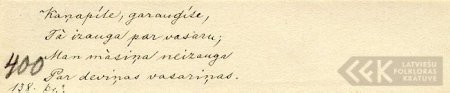 Kaņapīte, garaudīte,
Tā izauga par vasaru;
400
Man māsiņa neizauga
Par deviņas vasariņas.
138.
LATVIEŠU
FOLKLORAS
KRĀTUVE